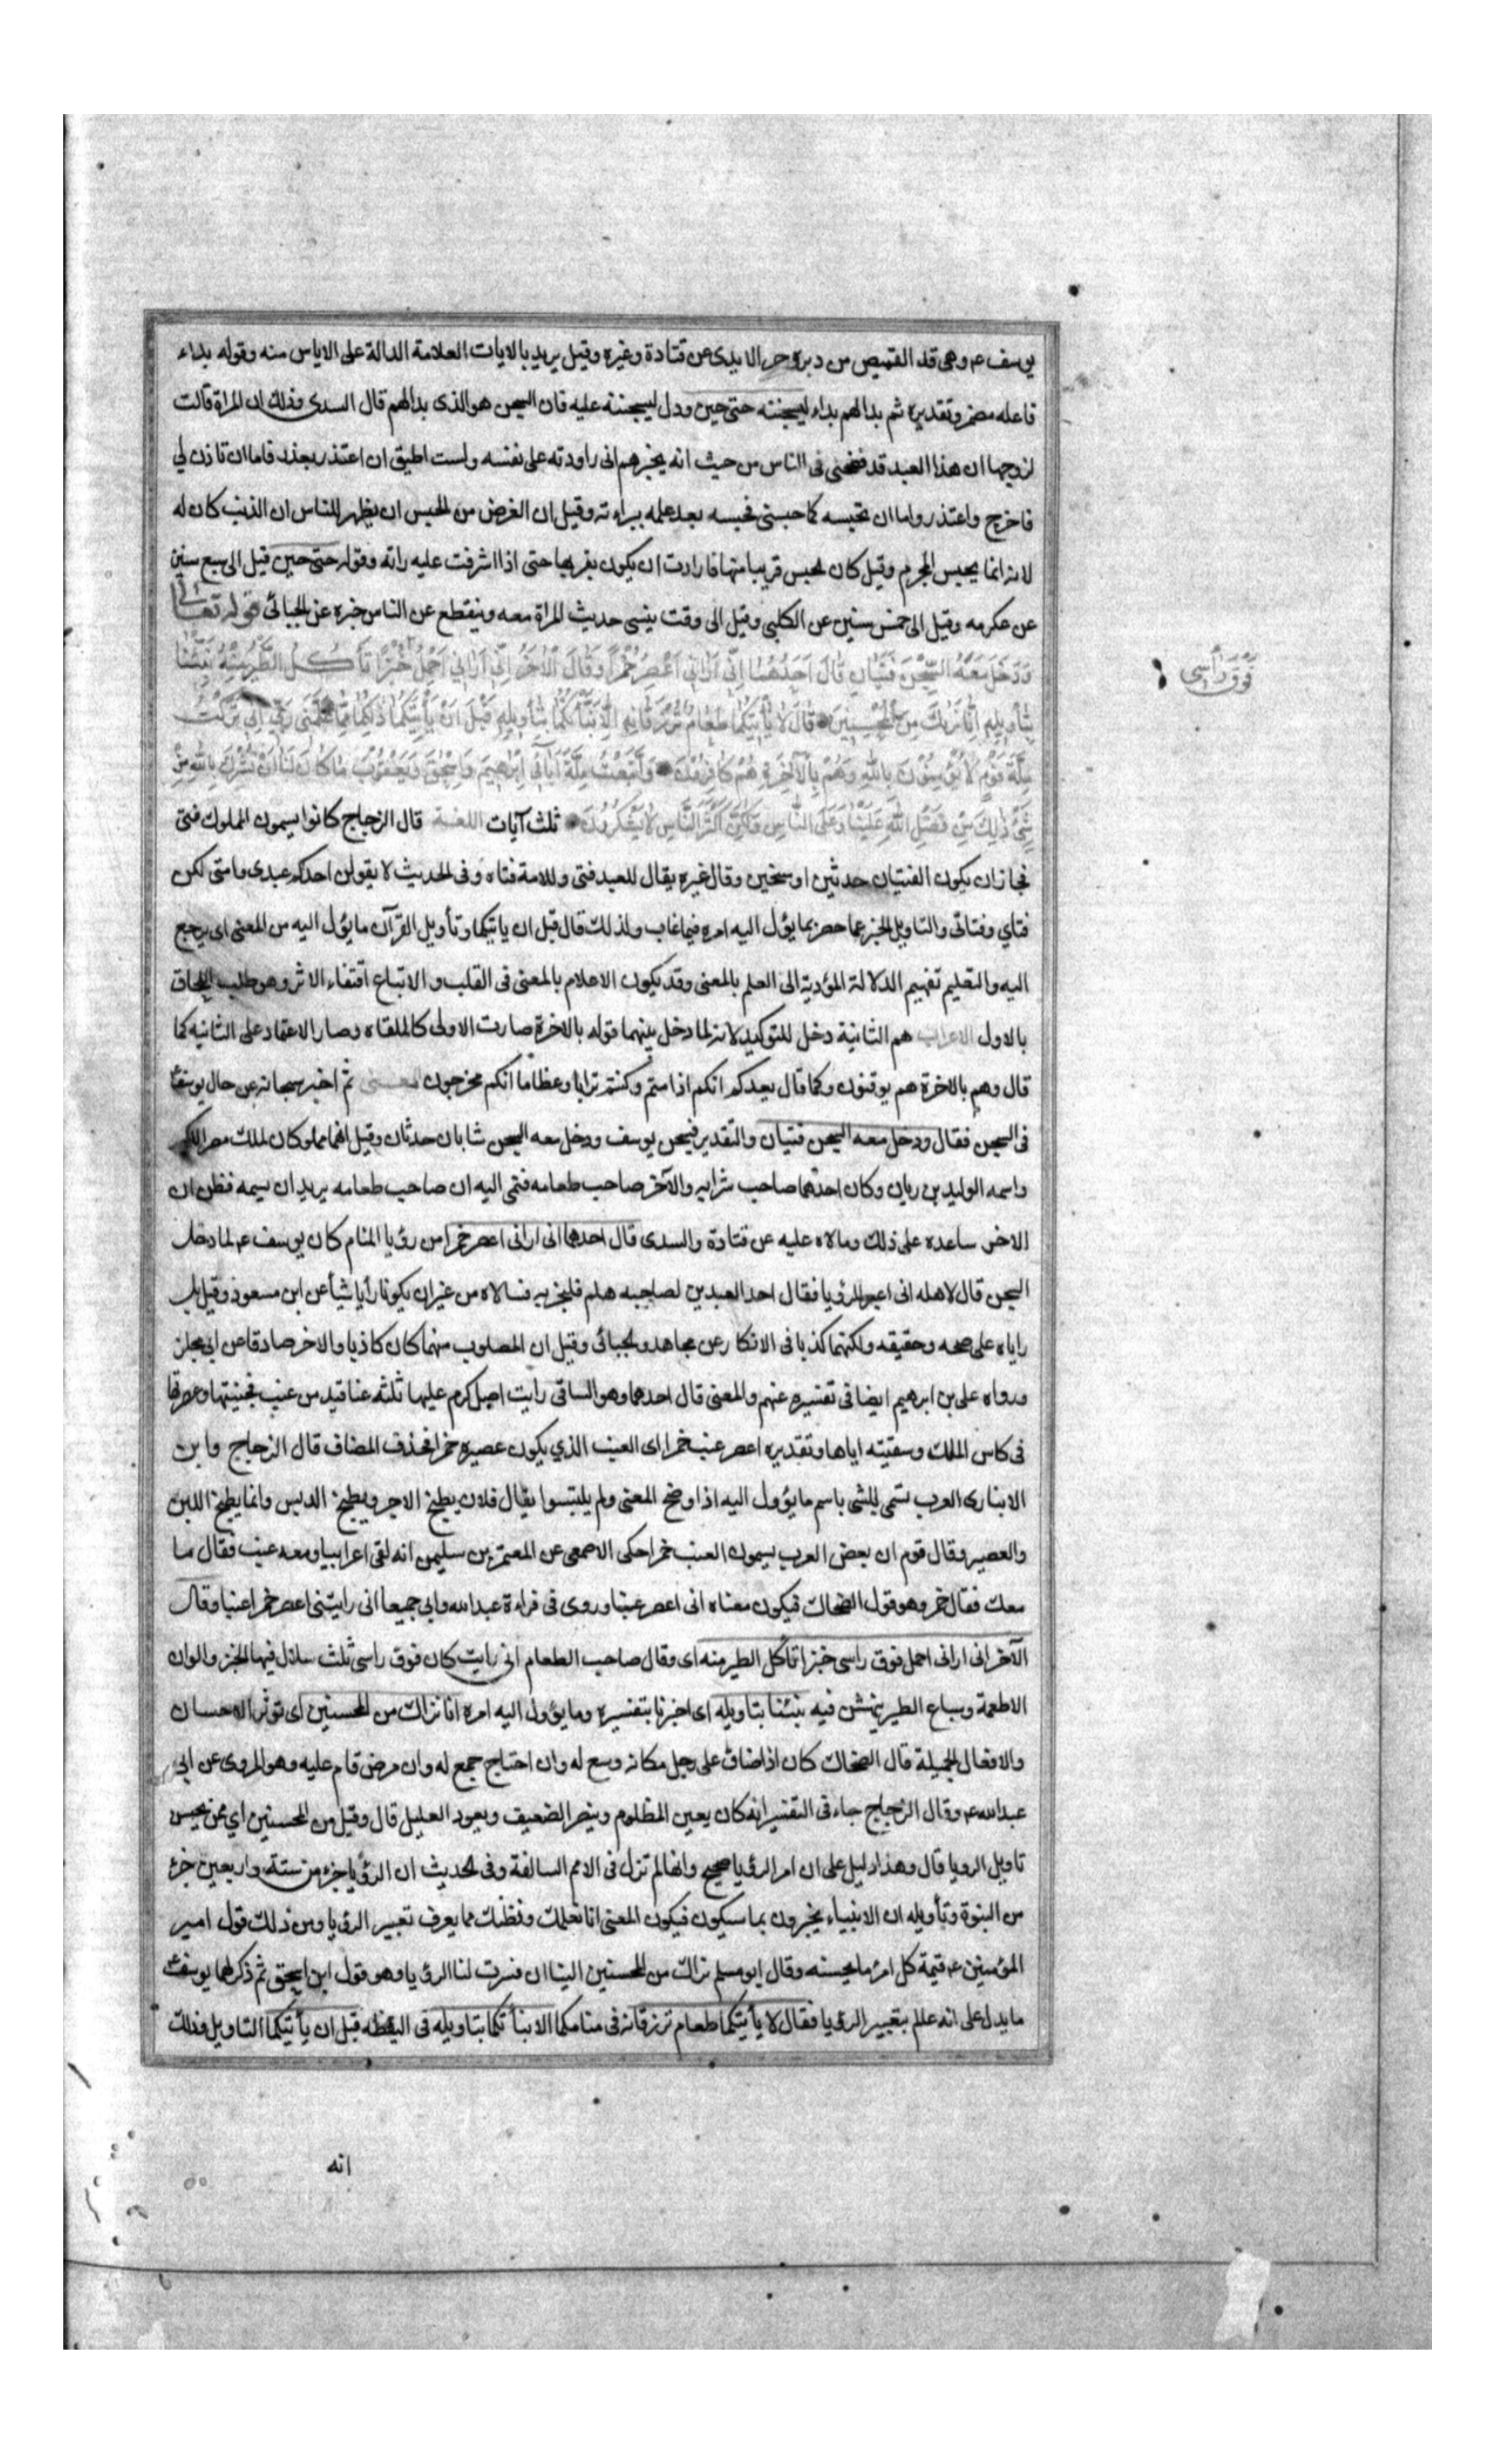 يوسف ع وهى قد القميص من دبره وحز الايدى عن قتادة وغيره وقيل يريد بالايات العلامة الدالة على الاياس منه وقوله بداء
فاعله مضمر وتقديره ثم بدا لهم بداء ليسجننه حتى حين ودل ليسجننه عليه فان السجن هو الذى بدا لهم قال السدى وذلك ان المراة قالت
لزوجها ان هذا العبد قد فضحنى فى الناس من حيث انه يخبرهم انى راودته على نفسه ولست اطيق ان اعتذر بعذر فاما ان تاذن لي
فاخرج واعتذر واما ان تحبسه كما حبستنى فحبسه بعد علمه ببراءته وقيل ان الغرض من الحبس ان يظهر للناس ان الذنب كان له
لانه انما يحبس المجرم وقيل كان الحبس قريبا منها فارادت ان يكون بقربها حتى اذا اشرفت عليه راته وقوله حتى حين قيل الى سبع سنين
عن عكرمه وقيل الى خمس سنين عن الكلبى وقيل الى وقت ينسى حديث المراة معه وينقطع عن الناس خبره عن الجبائى قوله تعالى
وَدَخَلَ مَعَهُ السِّجْنَ فَتَيَانِ قَالَ اَحَدُهُمَا اِنِّى اَرَانِى اَعْصِرُ خَمْرًا وَقَالَ الْاٰخَرُ اِنِّى اَرَانِى اَحْمِلُ خُبْزًا تَأْكُلُ الطَّيْرُ مِنْهُ نَبِّئْنَا
فَوْقَ رَأْسِى
بِتَأْوِيلِهِ اِنَّا نَرٰيكَ مِنَ الْمُحْسِنِينَ قَالَ لَا يَأْتِيكُمَا طَعَامٌ تُرْزَقَانِهِ اِلَّا نَبَّأْتُكُمَا بِتَأْوِيلِهِ قَبْلَ اَنْ يَأْتِيَكُمَا ذٰلِكُمَا مِمَّا عَلَّمَنِى رَبِّى اِنِّى تَرَكْتُ
مِلَّةَ قَوْمٍ لَا يُؤْمِنُونَ بِاللّٰهِ وَهُمْ بِالْاٰخِرَةِ هُمْ كَافِرُونَ وَاتَّبَعْتُ مِلَّةَ اٰبَائِى اِبْرٰهِيمَ وَاِسْحٰقَ وَيَعْقُوبَ مَا كَانَ لَنَا اَنْ نُشْرِكَ بِاللّٰهِ مِنْ
شَىْءٍ ذٰلِكَ مِنْ فَضْلِ اللّٰهِ عَلَيْنَا وَعَلَى النَّاسِ وَلٰكِنَّ اَكْثَرَ النَّاسِ لَا يَشْكُرُونَ ثلث آيات اللغة قال الزجاج كانوا يسمون المملوك فتى
فجاز ان يكون الفتيان حدثين او شيخين وقال غيره يقال للعبد فتى وللامة فتاه وفى الحديث لا يقولن احدكم عبدى وامتى لكن
فتاي وفتاتى والتاويل الخبر عما حضر بما يؤل اليه امره فيما غاب ولذلك قال قبل ان ياتيكما وتأويل القرآن ما يؤل اليه من المعنى اى يرجع
اليه والتعليم تفهيم الدلالة المؤدية الى العلم بالمعنى وقد يكون الاعلام بالمعنى فى القلب و الاتباع اقتفاء الاثر وهو طلب اللحاق
بالاول الاعراب هم الثانية دخل للتوكيد لانه لما دخل بينهما قوله بالاخرة صارت الاولى كالملقاه وصار الاعتماد على الثانيه كما
قال وهم بالاخرة هم يوقنون وكما قال يعدكم انكم اذا متم وكنتم ترابا وعظاما انكم مخرجون المعنى ثم اخبر سبحانه عن حال يوسف
فى السجن فقال ودخل معه السجن فتيان والتقدير فسجن يوسف ودخل معه السجن شابان حدثان وقيل انهما مملوكان لملك مصر الاكبر
واسمه الوليد بن ريان وكان احدهما صاحب شرابه والآخر صاحب طعامه فنمى اليه ان صاحب طعامه يريد ان يسمه فظن ان
الاخر ساعده على ذلك ومالاه عليه عن قتادة والسدى قال احدهما انى ارانى اعصر خمرا من رؤيا المنام كان يوسف ع لما دخل
السجن قال لاهله انى اعبر الرؤيا فقال احد العبدين لصاحبه هلم فلنجربه فسالاه من غير ان يكونا رأيا شيأ عن ابن مسعود وقيل بل
راياه على صحه وحقيقه ولكنهما كذبا فى الانكار عن مجاهد والجبائى وقيل ان المصلوب منهما كان كاذبا والاخر صادقا عن ابى مجلز
ورواه على بن ابرهيم ايضا فى تفسيره عنهم والمعنى قال احدهما وهو الساقى رايت اصل كرم عليها ثلثه عناقيد من عنب فجنيتها وعصرتها
فى كاس الملك وسقيته اياها وتقديره اعصر عنب خمر اى العنب الذي يكون عصيره خمرا فحذف المضاف قال الزجاج وابن
الانبارى العرب تسمى الشئ باسم ما يؤول اليه اذا وضح المعنى ولم يلتبسوا يقال فلان يطبخ الاجر ويطبخ الدبس وانما يطبخ اللبن
والعصير وقال قوم ان بعض العرب يسمون العنب خمرا حكى الاصمعى عن المعتمر بن سليمن انه لقى اعرابيا ومعه عنب فقال ما
معك فقال خمر وهو قول الضحاك فيكون معناه انى اعصر عنبا وروى فى قراءة عبد الله وابي جميعا انى رايتنى اعصر خمرا عنبا وقال
الآخر انى ارانى احمل فوق راسى خبزا تأكل الطير منه اى وقال صاحب الطعام انى رايت كان فوق راسى ثلث سلال فيها الخبز والوان
الاطعمة وسباع الطير ينهش فيه نبئنا بتاويله اى اخبرنا بتفسيره وما يؤول اليه امره انا نراك من المحسنين اى تؤثر الاحسان
والافعال الجميلة قال الضحاك كان اذا ضاق على رجل مكانه وسع له وان احتاج جمع له وان مرض قام عليه وهو المروى عن ابى
عبد الله ع وقال الزجاج جاء فى التفسير انه كان يعين المظلوم وينصر الضعيف ويعود العليل قال وقيل من المحسنين اي ممن يحسن
تاويل الرويا قال وهذا دليل على ان امر الرؤيا صحيح وانها لم تزل فى الامم السالفة وفى الحديث ان الرؤيا جزء من ستة واربعين جزء
من النبوة وتأويله ان الانبياء يخبرون بما سيكون فيكون المعنى انا نعلمك ونظنك مما يعرف تعبير الرؤيا ومن ذلك قول امير
المؤمنين ع قيمة كل امرئ ما يحسنه وقال ابو مسلم نراك من المحسنين الينا ان فسرت لنا الرؤيا وهو قول ابن اسحق ثم ذكر لهما يوسف
ما يدل على انه عالم بتعبير الرؤيا فقال لا يأتيكما طعام ترزقانه فى منامكما الا نبأتكما بتاويله فى اليقظه قبل ان يأتيكما التاويل وذلك
انه